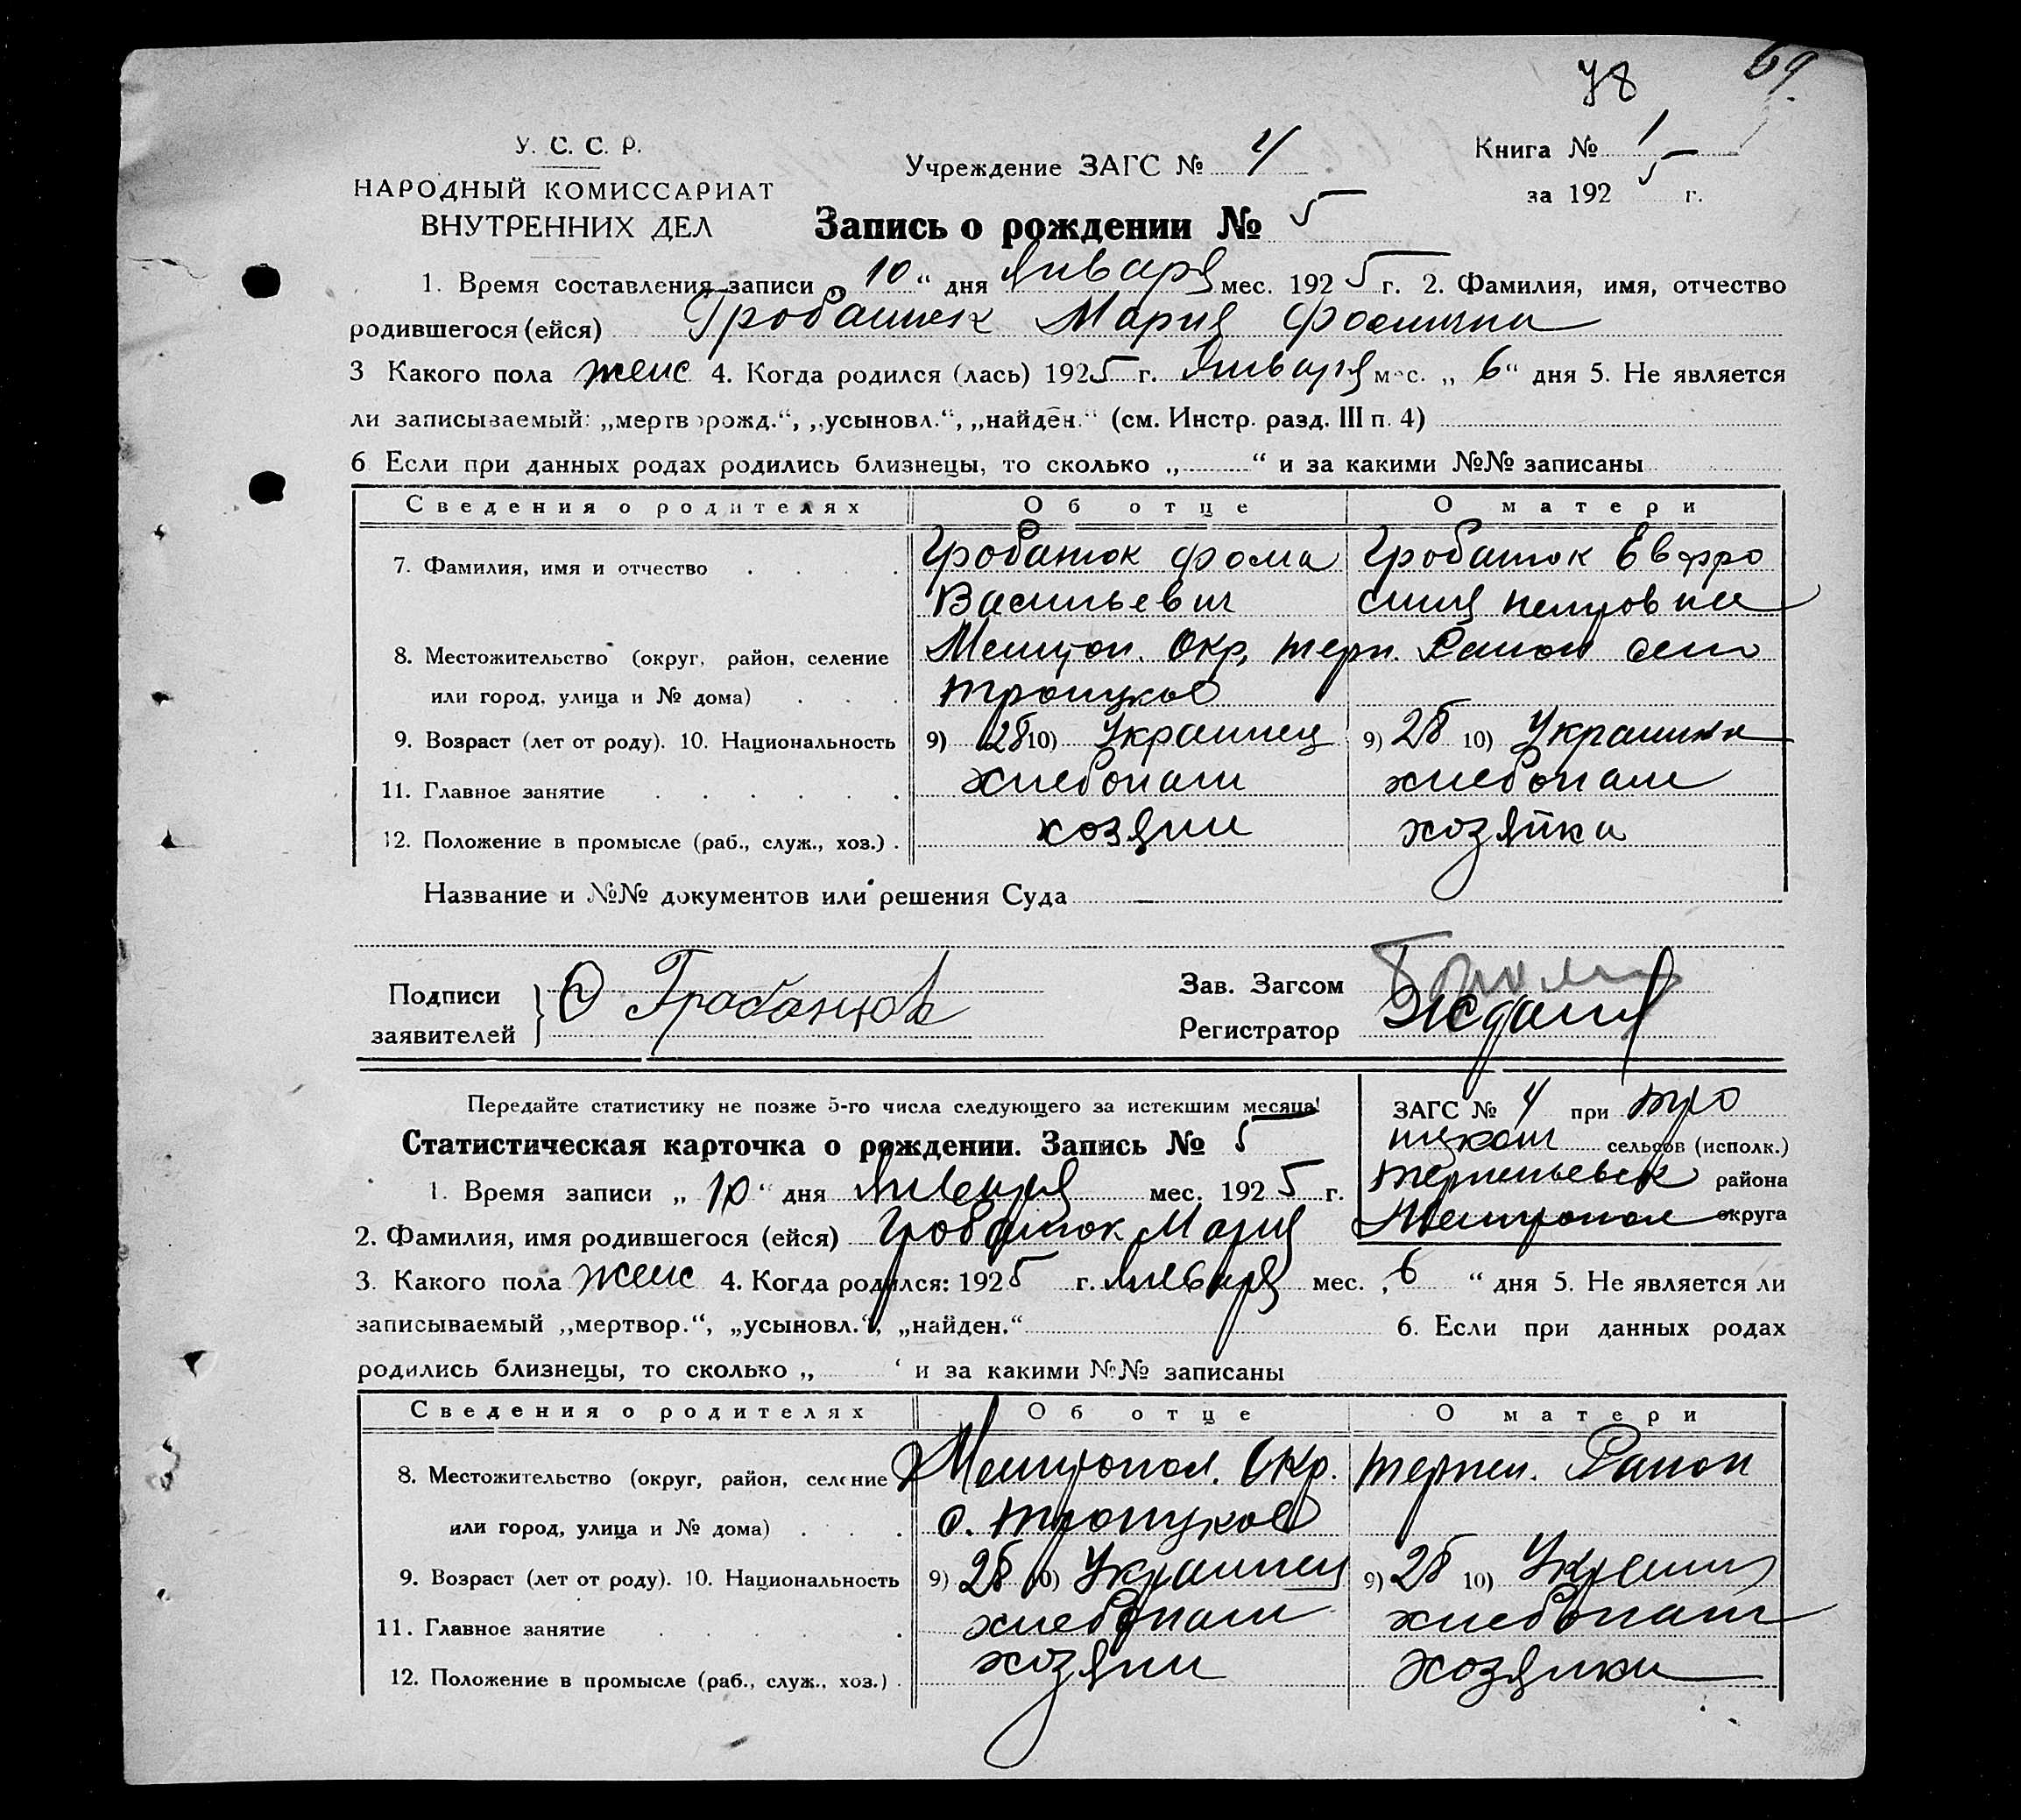 78
69.
У. С. С. Р.
НАРОДНЫЙ КОМИССАРИАТ
ВНУТРЕННИХ ДЕЛ
Учреждение ЗАГС № 4
Книга № 1
за 1925 г.
Запись о рождении № 5
1. Время составления записи „10“ дня Января мес. 1925 г. 2. Фамилия, имя, отчество
родившегося (ейся) Мария
3 Какого пола женс 4. Когда родился (лась) 1925 г. Января мес. „6“ дня 5. Не является
ли записываемый: „мертворожд.“, „усыновл.“, „найден.“ (см. Инстр. разд. III п. 4)
6 Если при данных родах родились близнецы, то сколько „ “ и за какими №№ записаны
Сведения о родителях Об отце О матери
7. Фамилия, имя и отчество Гробанюк Фома Гробанюк Евфро
Васильевич синия Петровна
8. Местожительство (округ, район, селение Мелитоп. Окр, терп. Район село
или город, улица и № дома) троицкое
9. Возраст (лет от роду). 10. Национальность 9) 28 10) Украинец 9) 28 10) Украинка
11. Главное занятие хлебопаш хлебопаш
12. Положение в промысле (раб., служ., хоз.) хозяин хозяйка
Название и №№ документов или решения Суда
Подписи
заявителей
Зав. Загсом
Регистратор
Передайте статистику не позже 5-го числа следующего за истекшим месяца!
Статистическая карточка о рождении. Запись № 5
ЗАГС № 4 при тро
ицком сельсов (исполк.)
Терпеньевск района
Мелитопол округа
1. Время записи „10“ дня Января мес. 1925 г.
2. Фамилия, имя родившегося (ейся) Гробанюк Мария
3. Какого пола женс 4. Когда родился: 1925 г. января мес. „6“ дня 5. Не является ли
записываемый „мертвор.“, „усыновл.“, „найден.“ 6. Если при данных родах
родились близнецы, то сколько „ “ и за какими №№ записаны
Сведения о родителях Об отце О матери
8. Местожительство (округ, район, селение Мелитопол. Окр. терпен. Район
или город, улица и № дома) с. троицкое
9. Возраст (лет от роду). 10. Национальность 9) 28 10) Украинец 9) 28 10)
11. Главное занятие хлебопаш хлебопаш
12. Положение в промысле (раб., служ., хоз.) хозяин хозяйка